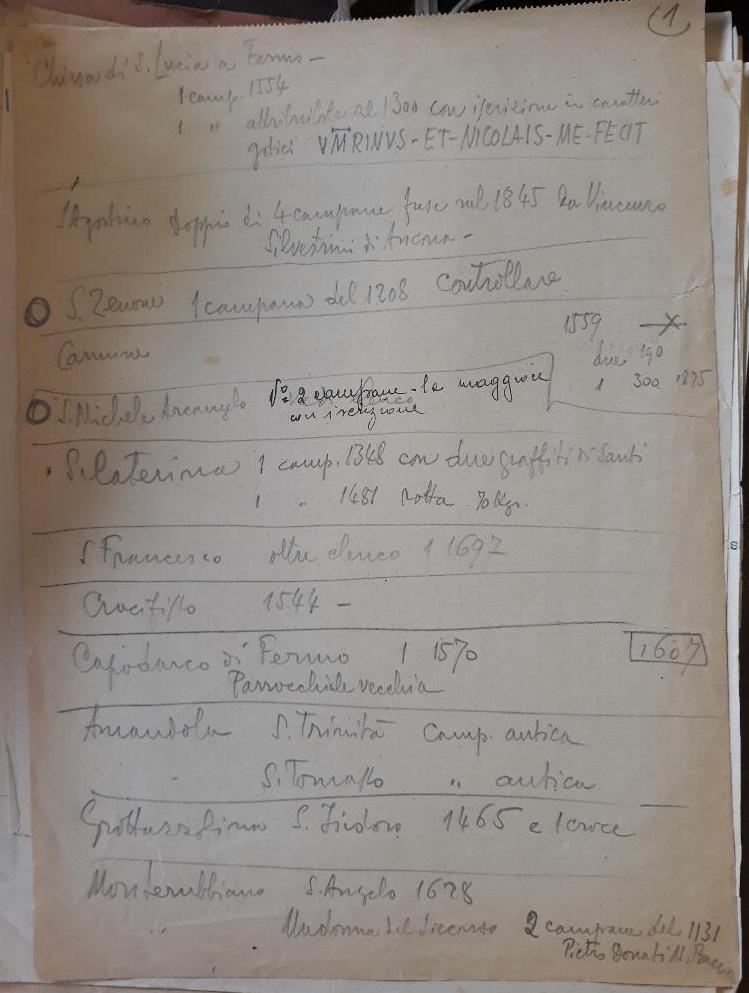 1
Chiesa di S. Lucia a Fermo -
1 camp. 1554
1 " attribuibile al 1300 con iscrizione in caratteri
gotici VMRINVS-ET-NICOLAIS-ME-FECIT
S Agostino doppio di 4 campane fuse nel 1845 da Vincenzo
Silvestrini di Ancona -
S. Zenone 1 campana del 1208 Controllare
Carmine 1559
due 190
1 300 1875
S. Michele Arcangelo N° 2 campane - la maggiore
con iscrizione
S. Caterina 1 camp. 1348 con due graffiti di Santi
1 " 1481 rotta 70 Kgr.
S Francesco oltre elenco 1 1697
Crocifisso 1544 -
Capodarco di Fermo 1 1570 1607
Parrocchiale vecchia
Amandola S. Trinità camp. antica
" S. Tomasso " antica
Grottazzolina S. Isidoro 1465 e 1 croce
Monterubbiano S. Angelo 1628
" Madonna del Soccorso 2 campane del 1131
Pietro Donati M.